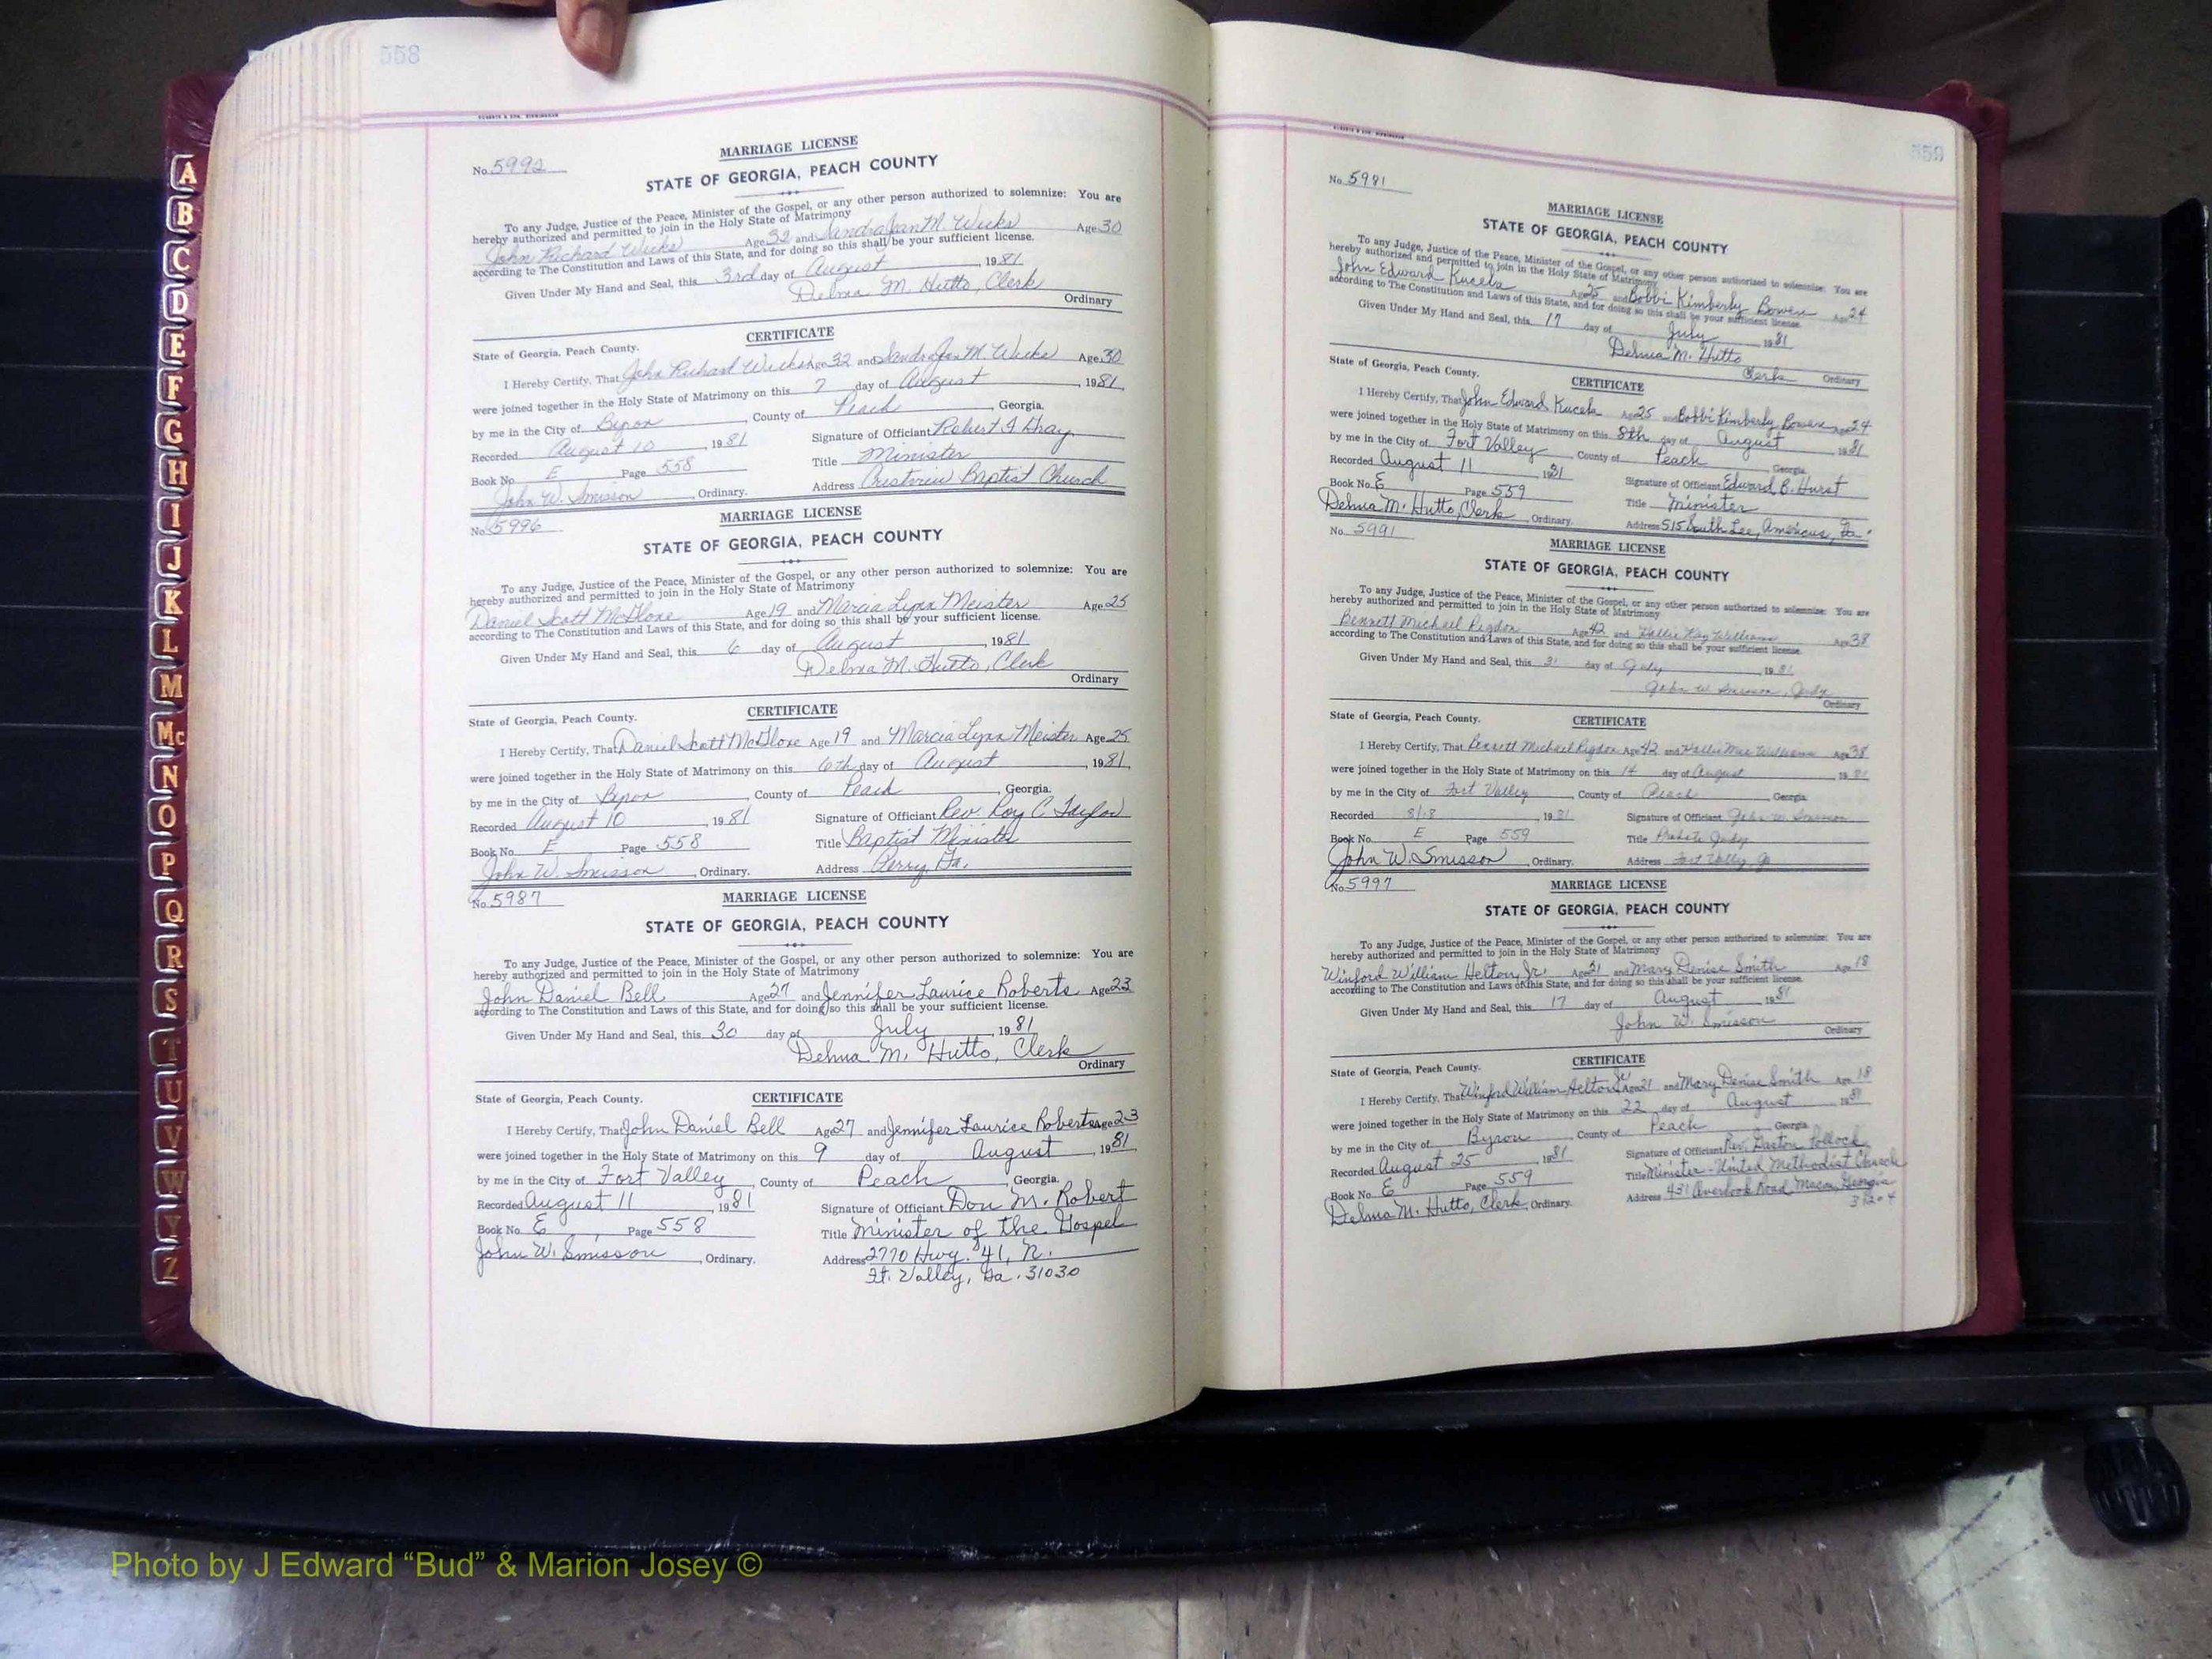 558
No. 5992
MARRIAGE LICENSE
STATE OF GEORGIA, PEACH COUNTY
To any Judge, Justice of the Peace, Minister of the Gospel, or any other person authorized to solemnize: You are
hereby authorized and permitted to join in the Holy State of Matrimony
John Richard Weeks Age 32 and Sandra Jean M. Weeks Age 30
according to The Constitution and Laws of this State, and for doing so this shall be your sufficient license.
Given Under My Hand and Seal, this 3rd day of August, 1981
Delma M. Hutto, Clerk
Ordinary
CERTIFICATE
State of Georgia, Peach County.
I Hereby Certify, That John Richard Weeks Age 32 and Sandra Jean M. Weeks Age 30
were joined together in the Holy State of Matrimony on this 7 day of August, 1981,
by me in the City of Byron, County of Peach, Georgia.
Recorded August 10, 1981 Signature of Officiant Robert
Book No. E Page 558 Title Minister
John W. Smisson, Ordinary. Address Crestview Baptist Church
No. 5996
MARRIAGE LICENSE
STATE OF GEORGIA, PEACH COUNTY
To any Judge, Justice of the Peace, Minister of the Gospel, or any other person authorized to solemnize: You are
hereby authorized and permitted to join in the Holy State of Matrimony
Daniel Scott McGlone Age 19 and Marcia Lynn Meister Age 25
according to The Constitution and Laws of this State, and for doing so this shall be your sufficient license.
Given Under My Hand and Seal, this 6 day of August, 1981
Delma M. Hutto, Clerk
Ordinary
CERTIFICATE
State of Georgia, Peach County.
I Hereby Certify, That Daniel Scott McGlone Age 19 and Marcia Lynn Meister Age 25
were joined together in the Holy State of Matrimony on this 6th day of August, 1981,
by me in the City of Byron, County of Peach, Georgia.
Recorded August 10, 1981 Signature of Officiant Rev. Roy C. Taylor
Book No. E Page 558 Title Baptist Minister
John W. Smisson, Ordinary. Address Perry, Ga.
No. 5987
MARRIAGE LICENSE
STATE OF GEORGIA, PEACH COUNTY
To any Judge, Justice of the Peace, Minister of the Gospel, or any other person authorized to solemnize: You are
hereby authorized and permitted to join in the Holy State of Matrimony
John Daniel Bell Age 27 and Jennifer Laurice Roberts Age 23
according to The Constitution and Laws of this State, and for doing so this shall be your sufficient license.
Given Under My Hand and Seal, this 30 day of July, 1981
Delma M. Hutto, Clerk
Ordinary
CERTIFICATE
State of Georgia, Peach County.
I Hereby Certify, That John Daniel Bell Age 27 and Jennifer Laurice Roberts Age 23
were joined together in the Holy State of Matrimony on this 9 day of August, 1981,
by me in the City of Fort Valley, County of Peach, Georgia.
Recorded August 11, 1981 Signature of Officiant Don M. Robert
Book No. E Page 558 Title Minister of the Gospel
John W. Smisson, Ordinary. Address 2770 Hwy. 41, N.
Ft. Valley, Ga. 31030
559
No. 5981
MARRIAGE LICENSE
STATE OF GEORGIA, PEACH COUNTY
To any Judge, Justice of the Peace, Minister of the Gospel, or any other person authorized to solemnize: You are
hereby authorized and permitted to join in the Holy State of Matrimony
John Edward Kucela Age 25 and Bobbi Kimberly Bowen Age 24
according to The Constitution and Laws of this State, and for doing so this shall be your sufficient license.
Given Under My Hand and Seal, this 17 day of July, 1981
Delma M. Hutto
Clerk Ordinary
State of Georgia, Peach County.
CERTIFICATE
I Hereby Certify, That John Edward Kucela Age 25 and Bobbi Kimberly Bowen Age 24
were joined together in the Holy State of Matrimony on this 8th day of August, 1981
by me in the City of Fort Valley, County of Peach, Georgia.
Recorded August 11, 1981 Signature of Officiant Edward B. Hurst
Book No. E Page 559 Title Minister
Delma M. Hutto, Clerk, Ordinary. Address 515 South Lee, Americus, Ga.
No. 5991
MARRIAGE LICENSE
STATE OF GEORGIA, PEACH COUNTY
To any Judge, Justice of the Peace, Minister of the Gospel, or any other person authorized to solemnize: You are
hereby authorized and permitted to join in the Holy State of Matrimony
Bennett Michael Rigdon Age 42 and Williams Age 38
according to The Constitution and Laws of this State, and for doing so this shall be your sufficient license.
Given Under My Hand and Seal, this 31 day of July, 1981
John W. Smisson, Judge
Ordinary
State of Georgia, Peach County.
CERTIFICATE
I Hereby Certify, That Bennett Michael Rigdon Age 42 and Williams Age 38
were joined together in the Holy State of Matrimony on this 14 day of August, 1981
by me in the City of Fort Valley, County of Peach, Georgia.
Recorded 8/18, 1981 Signature of Officiant John W. Smisson
Book No. E Page 559 Title Probate Judge
John W. Smisson, Ordinary. Address Fort Valley Ga
No. 5997
MARRIAGE LICENSE
STATE OF GEORGIA, PEACH COUNTY
To any Judge, Justice of the Peace, Minister of the Gospel, or any other person authorized to solemnize: You are
hereby authorized and permitted to join in the Holy State of Matrimony
Winford William Helton, Jr. Age 21 and Mary Denise Smith Age 18
according to The Constitution and Laws of this State, and for doing so this shall be your sufficient license.
Given Under My Hand and Seal, this 17 day of August, 1981
John W. Smisson
Ordinary
State of Georgia, Peach County.
CERTIFICATE
I Hereby Certify, That Winford William Helton, Jr. Age 21 and Mary Denise Smith Age 18
were joined together in the Holy State of Matrimony on this 22 day of August, 1981
by me in the City of Byron, County of Peach, Georgia.
Recorded August 25, 1981 Signature of Officiant Rev. Gaston Pollock
Book No. E Page 559 Title Minister - United Methodist Church
Delma M. Hutto, Clerk, Ordinary. Address 431 Overlook Road, Macon, Georgia
31204
A
B
C
D
E
F
G
H
I
J
K
L
M
Mc
N
O
P
Q
R
S
T
U
V
W
Y
Z
Photo by J Edward “Bud” & Marion Josey ©